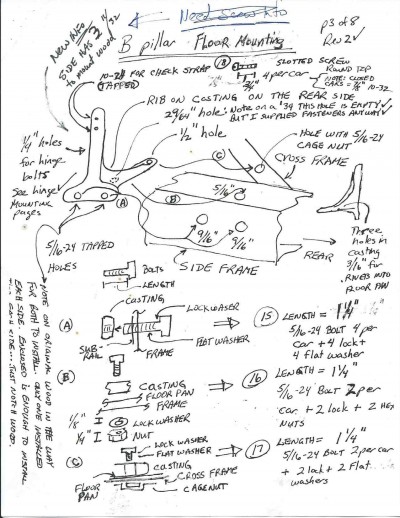 Need Screws
p 3 of 8
Rev 2 ✓
B pillar FLOOR MOUNTING
NEW INFO
SIDE HAS 3
to mount wood
10-24 FOR CHECK STRAP
TAPPED
18
4 per car
3/4"
SLOTTED SCREW
ROUND TOP
NOTE: CLOSED
CARS = 7/8" 10-32
RIB ON CASTING ON THE REAR SIDE
29/64" hole: Note on a '34 THIS HOLE IS EMPTY ✓
BUT I SUPPLIED FASTENERS ANYWAY ✓
1/2" hole
1/4" holes
for hinge
bolts
See hinge
MOUNTING
pages
C
HOLE WITH 5/16-24
CAGE NUT
CROSS FRAME
A
B
5/16"
9/16"
9/16"
5/16-24 TAPPED
HOLES
SIDE FRAME
REAR
Three
holes in
casting
3/16" for
RIVETS INTO
FLOOR PAN
BOLTS
LENGTH
NOTE ON ORIGINAL WOOD IN THE WAY
FOR BOTH TO INSTALL. ONLY ONE INSTALLED
EACH SIDE. ENCLOSED IS ENOUGH TO INSTALL
A
CASTING
LOCKWASER
FLAT WASHER
SUB-
RAIL
FRAME
15 LENGTH = 1 1/4"
5/16-24 BOLT 4 per
car + 4 lock +
4 flat washer
B
CASTING
FLOOR PAN
FRAME
1/8"
1/4"
LOCKWASHER
NUT
16 LENGTH = 1 1/4"
5/16-24 BOLT 2 per
car + 2 lock + 2 HEX
NUTS
C
LOCK WASHER
FLAT WASHER
CASTING
CROSS FRAME
FLOOR
PAN
CAGENUT
17 LENGTH = 1 1/4"
5/16-24 BOLT 2 per car
+ 2 lock + 2 Flat
washers